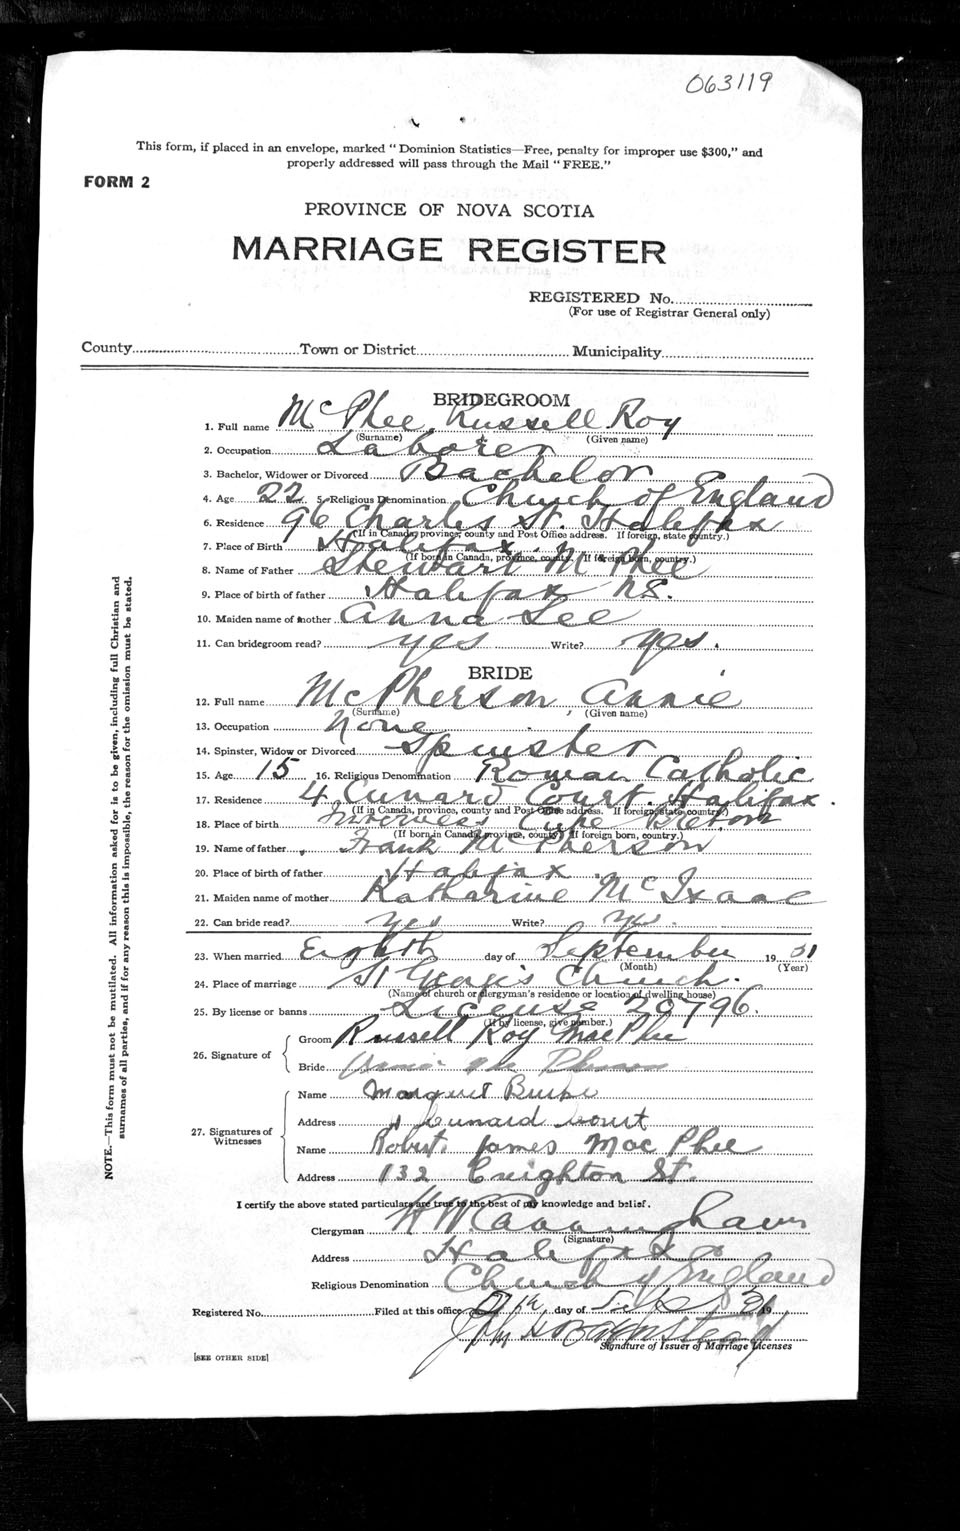 063119
This form, if placed in an envelope, marked "Dominion Statistics—Free, penalty for improper use $300," and
properly addressed will pass through the Mail "FREE."
FORM 2
PROVINCE OF NOVA SCOTIA
MARRIAGE REGISTER
REGISTERED No.
(For use of Registrar General only)
County Town or District Municipality
BRIDEGROOM
1. Full name McPhee Russell Roy
(Surname) (Given name)
2. Occupation Laborer
3. Bachelor, Widower or Divorced Bachelor
4. Age 22 5. Religious Denomination Church of England
6. Residence 96 Charles St. Halifax
(If in Canada, province, county and Post Office address. If foreign, state country.)
7. Place of Birth Halifax.
(If born in Canada, province, county. If foreign born, country.)
8. Name of Father Stewart McPhee
9. Place of birth of father Halifax NS.
10. Maiden name of mother Anna Lee
11. Can bridegroom read? yes Write? yes.
BRIDE
12. Full name McPherson Annie
(Surname) (Given name)
13. Occupation None
14. Spinster, Widow or Divorced Spinster
15. Age 15 16. Religious Denomination Roman Catholic
17. Residence 4 Cunard Court. Halifax.
(If in Canada, province, county and Post Office address. If foreign, state country.)
18. Place of birth Inverness Cape Breton
(If born in Canada, province, county. If foreign born, country.)
19. Name of father Frank McPherson
20. Place of birth of father Halifax
21. Maiden name of mother Katharine McIsaac
22. Can bride read? yes Write? yes.
23. When married Eighth day of September 19 31
(Month) (Year)
24. Place of marriage St George's Church.
(Name of church or clergyman's residence or location of dwelling house)
25. By license or banns License 20796.
(If by license, give number.)
26. Signature of
Groom Russell Roy MacPhee
Bride Annie Mc Pherson
27. Signatures of Witnesses
Name Margaret Burke
Address 4 Cunard Court
Name Robert James MacPhee
Address 132 Creighton St.
I certify the above stated particulars are true to the best of my knowledge and belief.
Clergyman H W Cunningham
(Signature)
Address Halifax
Religious Denomination Church of England
Registered No. Filed at this office day of 31 19
Signature of Issuer of Marriage Licenses
[SEE OTHER SIDE]
NOTE.—This form must not be mutilated. All information asked for is to be given, including full Christian and
surnames of all parties, and if for any reason this is impossible, the reason for the omission must be stated.